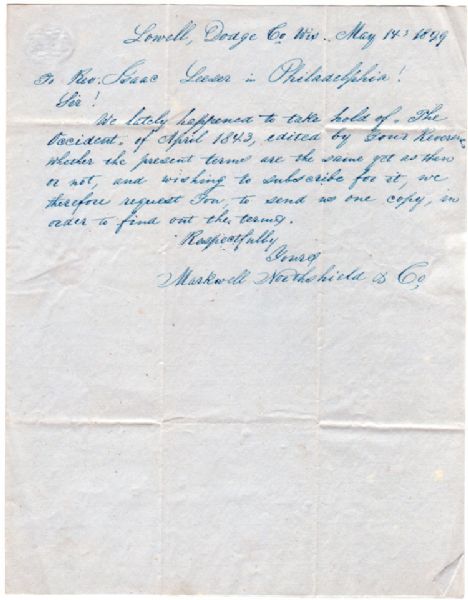 Lowell, Dodge Co Wis. May 14th 1849
To Rev. Isaac Leeser in Philadelphia!
Sir!
We lately happened to take hold of "The
Occident" of April 1843, edited by Your Reverence
whether the present terms are the same yet as then
or not, and wishing to subscribe for it, we
therefore request You, to send us one copy, in
order to find out the terms.
Respectfully
Yours
Markwell Northshield & Co